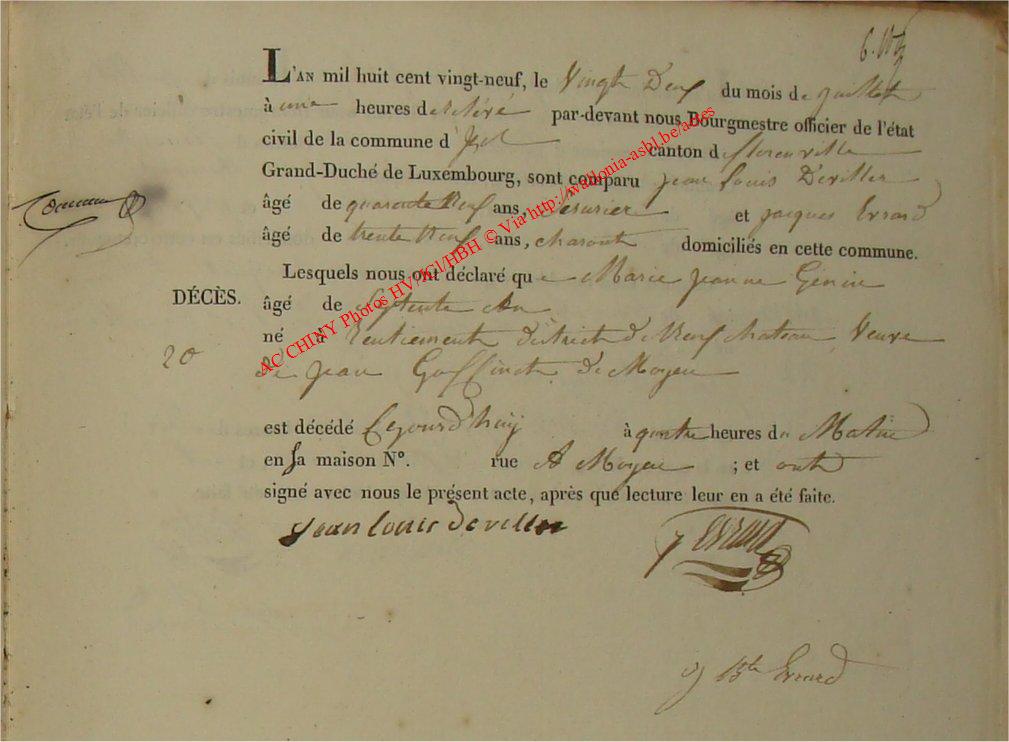 L'AN mil huit cent vingt-neuf, le Vingt Deux du mois de juillet
à une heures de relévé par-devant nous Bourgmestre officier de l'état
civil de la commune d' canton de florenville
Grand-Duché de Luxembourg, sont comparu Jean Louis Deviller
âgé de quarante neuf ans, et jacques Evrard
âgé de trente neuf ans, domiciliés en cette commune.
Lesquels nous ont déclaré que Marie jeanne Génin
DÉCÈS.
âgé de Septente An
20
né à district de Neufchateau Veuve
de jean Goffinet de Moyen
est décédé Cejourd'huy à quatre heures du Matin
en sa maison N°. rue A Moyen ; et ont
signé avec nous le présent acte, après que lecture leur en a été faite.
Jean Louis Deviller
J Evrard
j Bte Evrard
AC CHINY Photos HV/ICI/HBH © Via http://wallonia-asbl.be/actes